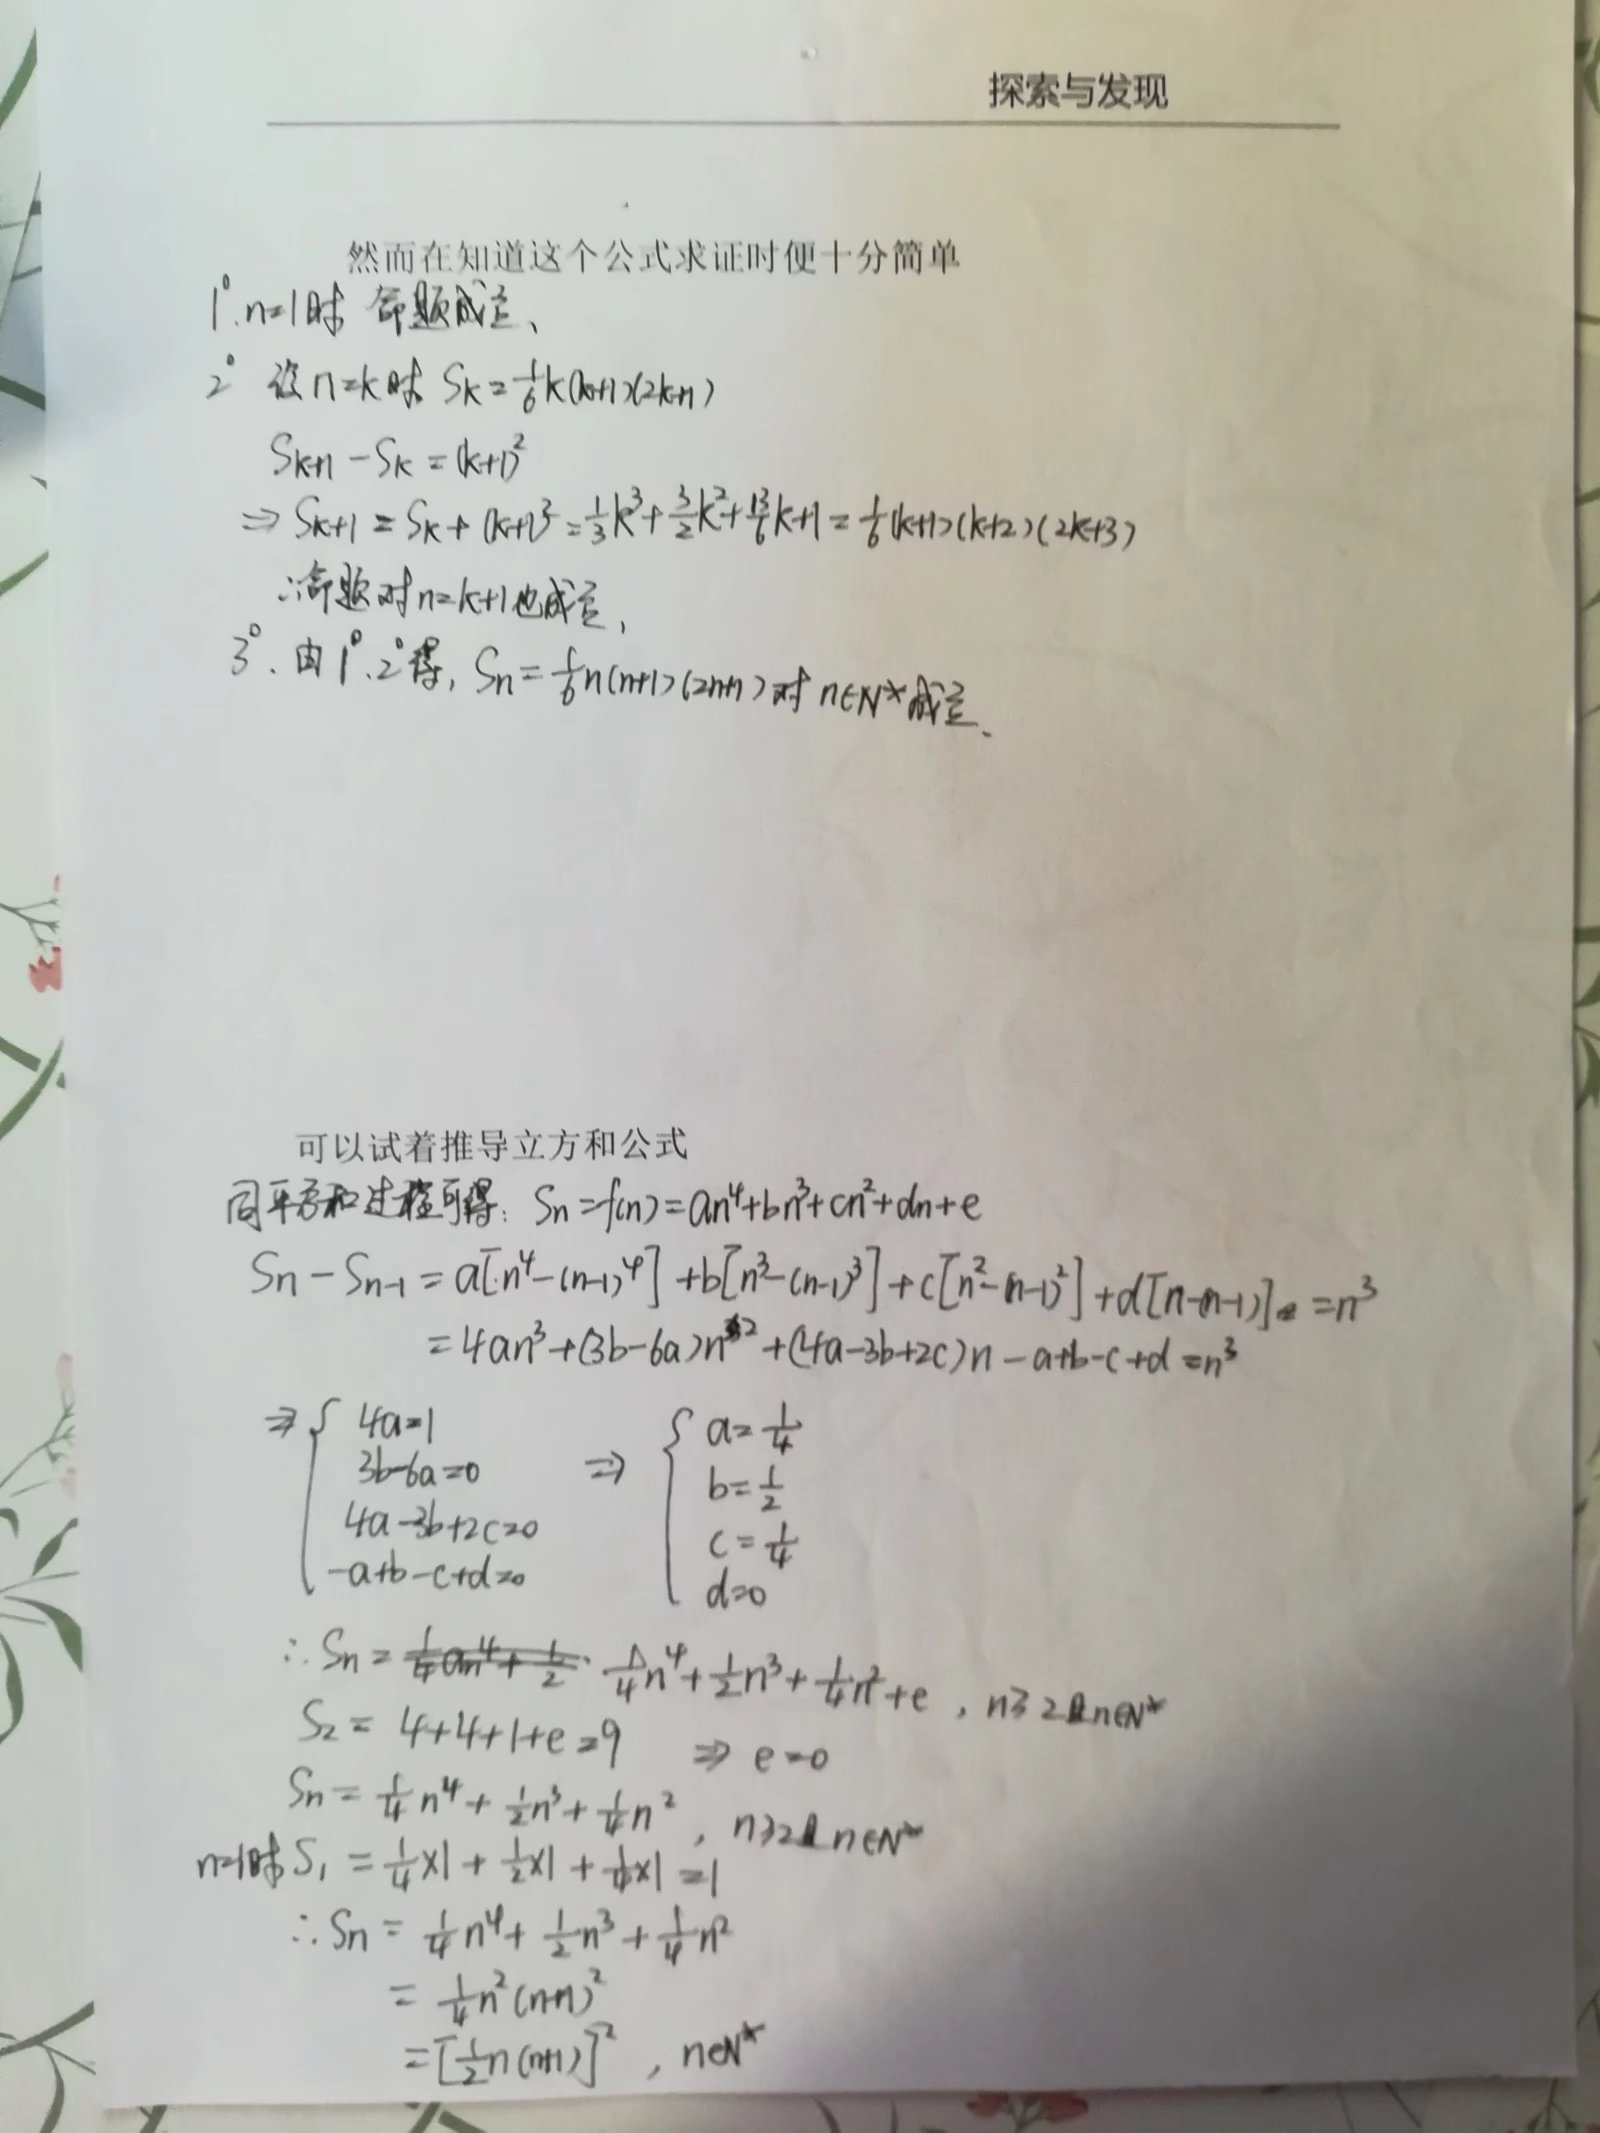 探索与发现
然而在知道这个公式求证时便十分简单
1°. n=1时 命题成立、
2° 设 n=k时 Sk=1/6k(k+1)(2k+1)
Sk+1-Sk=(k+1)²
⇒ Sk+1=Sk+(k+1)³=1/3k³+3/2k²+13/6k+1=1/6(k+1)(k+2)(2k+3)
∴命题对n=k+1也成立,
3°. 由1°.2°得, Sn=1/6n(n+1)(2n+1)对 n∈N*成立、
可以试着推导立方和公式
同平方和过程可得: Sn=f(n)=an⁴+bn³+cn²+dn+e
Sn-Sn-1=a[n⁴-(n-1)⁴]+b[n³-(n-1)³]+c[n²-(n-1)²]+d[n-(n-1)]=n³
=4an³+(3b-6a)n²+(4a-3b+2c)n-a+b-c+d=n³
⇒{ 4a=1 ⇒ { a=1/4
3b-6a=0 b=1/2
4a-3b+2c=0 c=1/4
-a+b-c+d=0 d=0
∴Sn=1/4n⁴+1/2n³+1/4n²+e, n≥2且n∈N*
S2=4+4+1+e=9 ⇒ e=0
Sn=1/4n⁴+1/2n³+1/4n², n≥2且n∈N*
n=1时S1=1/4×1+1/2×1+1/4×1=1
∴Sn=1/4n⁴+1/2n³+1/4n²
=1/4n²(n+1)²
=[1/2n(n+1)]², n∈N*